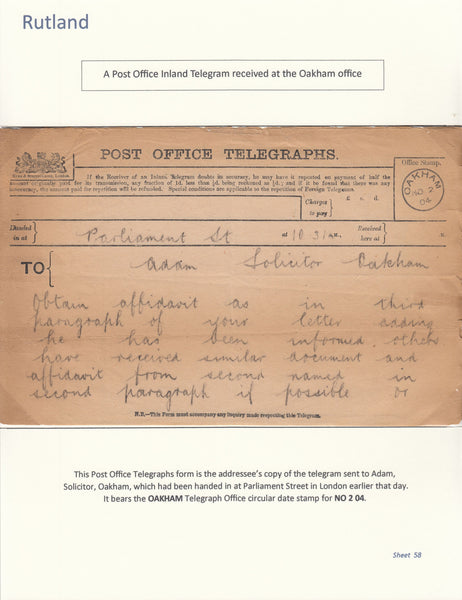 Rutland
A Post Office Inland Telegram received at the Oakham office
POST OFFICE TELEGRAPHS.
Office Stamp.
If the Receiver of an Inland Telegram doubts its accuracy, he may have it repeated on payment of half the
amount originally paid for its transmission, any fraction of 1d. less than ½d. being reckoned as ½d.; and if it be found that there was any
inaccuracy, the amount paid for repetition will be refunded. Special conditions are applicable to the repetition of Foreign Telegrams.
OAKHAM
NO 2
04
Charges to pay } £ s. d.
Handed in at } Parliament St at 10.31 M., Received here at } M.
TO { Adam Solicitor Oakham
Obtain affidavit as in third
paragraph of your letter adding
he has been informed others
have received similar document and
affidavit from second named in
second paragraph if possible or
N.B.—This Form must accompany any inquiry made respecting this Telegram.
This Post Office Telegraphs form is the addressee's copy of the telegram sent to Adam,
Solicitor, Oakham, which had been handed in at Parliament Street in London earlier that day.
It bears the OAKHAM Telegraph Office circular date stamp for NO 2 04.
Sheet 58